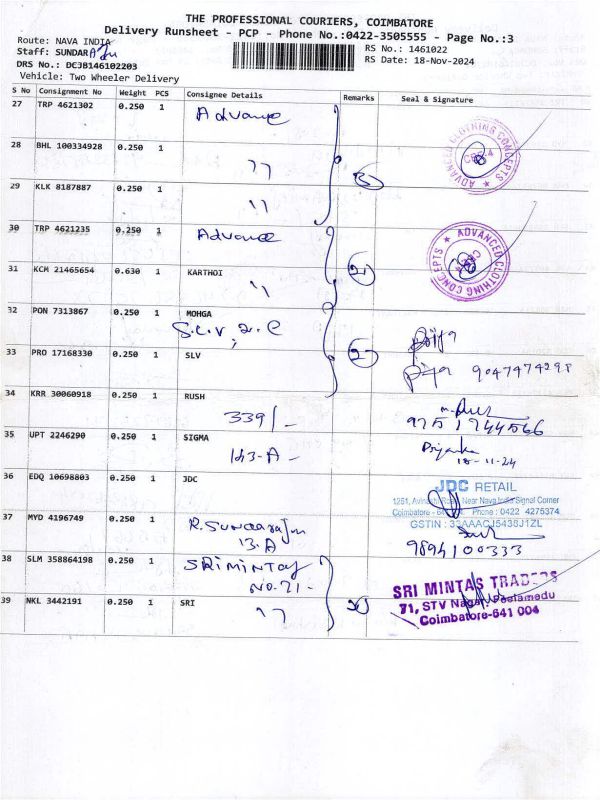 THE PROFESSIONAL COURIERS, COIMBATORE
Delivery Runsheet - PCP - Phone No.:0422-3505555 - Page No.:3
Route: NAVA INDIA
RS No.: 1461022
Staff: SUNDARA
RS Date: 18-Nov-2024
DRS No.: DCJB146102203
Vehicle: Two Wheeler Delivery
S No Consignment No Weight PCS Consignee Details Remarks Seal & Signature
27 TRP 4621302 0.250 1 Advance
28 BHL 100334928 0.250 1 "
ADVANCED CLOTHING CONCEPTS
29 KLK 8187887 0.250 1 "
30 TRP 4621235 0.250 1 Advance
ADVANCED CLOTHING CONCEPTS
31 KCM 21465654 0.630 1 KARTHOI
"
32 PON 7313867 0.250 1 MOHGA
33 PRO 17168330 0.250 1 SLV
Priya 9047474298
34 KRR 30060918 0.250 1 RUSH
339/-
9751744566
35 UPT 2246290 0.250 1 SIGMA
143-A-
Priyanka
18-11-24
36 EDQ 10698803 0.250 1 JDC
JDC RETAIL
Near Nava India Signal Corner
Coimbatore - Phone : 0422 4275374
GSTIN : 33AAACJ5436J1ZL
37 MYD 4196749 0.250 1 R. Sundararajan
13-A
9894100333
38 SLM 358864198 0.250 1 SRI MINTAS
NO.71-
39 NKL 3442191 0.250 1 SRI
"
SRI MINTAS TRADERS
71, STV Nagar, Peelamedu
Coimbatore-641 004